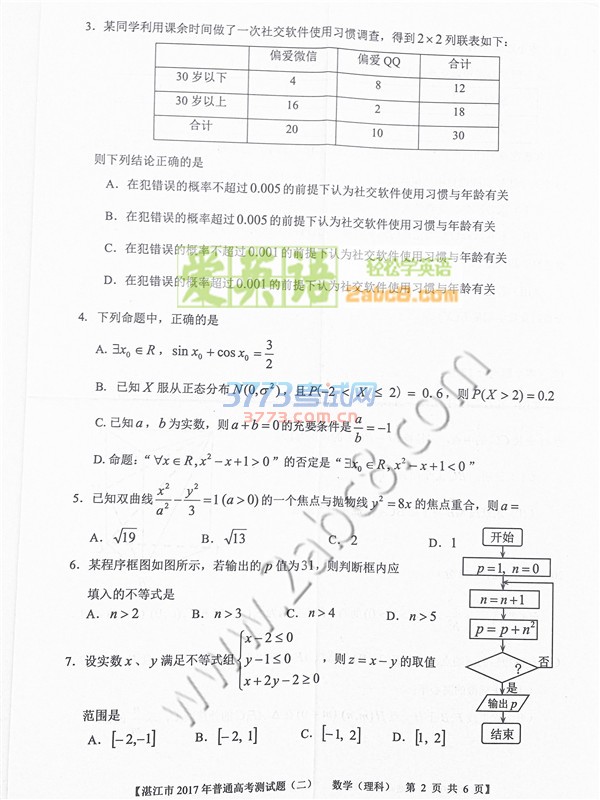 3. 某同学利用课余时间做了一次社交软件使用习惯调查，得到2×2列联表如下：
偏爱微信 偏爱QQ 合计
30岁以下 4 8 12
30岁以上 16 2 18
合计 20 10 30
则下列结论正确的是
A. 在犯错误的概率不超过0.005的前提下认为社交软件使用习惯与年龄有关
B. 在犯错误的概率超过0.005的前提下认为社交软件使用习惯与年龄有关
C. 在犯错误的概率不超过0.001的前提下认为社交软件使用习惯与年龄有关
D. 在犯错误的概率超过0.001的前提下认为社交软件使用习惯与年龄有关
爱英语 轻松学英语
2abc8.com
4. 下列命题中，正确的是
A. ∃x₀∈R，sin x₀+cos x₀=3/2
B. 已知X服从正态分布N(0,σ²)，且P(-2 < X ≤ 2) = 0.6，则P(X>2)=0.2
3773考试网
3773.com.cn
C. 已知a，b为实数，则a+b=0的充要条件是a/b=-1
D. 命题：“∀x∈R,x²-x+1>0”的否定是“∃x₀∈R,x²-x+1<0”
5. 已知双曲线x²/a²-y²/3=1(a>0)的一个焦点与抛物线y²=8x的焦点重合，则a=
A. √19 B. √13 C. 2 D. 1
6. 某程序框图如图所示，若输出的p值为31，则判断框内应
填入的不等式是
A. n>2 B. n>3 C. n>4 D. n>5
开始
p=1, n=0
n=n+1
p=p+n²
? 否
是
输出p
结束
7. 设实数x、y满足不等式组{x-2≤0
y-1≤0
x+2y-2≥0，则z=x-y的取值
范围是
A. [-2,-1] B. [-2, 1] C. [-1, 2] D. [1, 2]
www.2abc8.com
【湛江市2017年普通高考测试题（二） 数学（理科） 第2页 共6页】